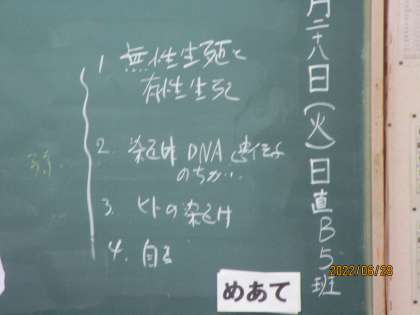 月二十八日(火)日直B5班
1. 無性生殖と
有性生殖
2. 染色体 DNA 遺伝子
のちがい
3. ヒトの染色体
4.
めあて
2022/06/28